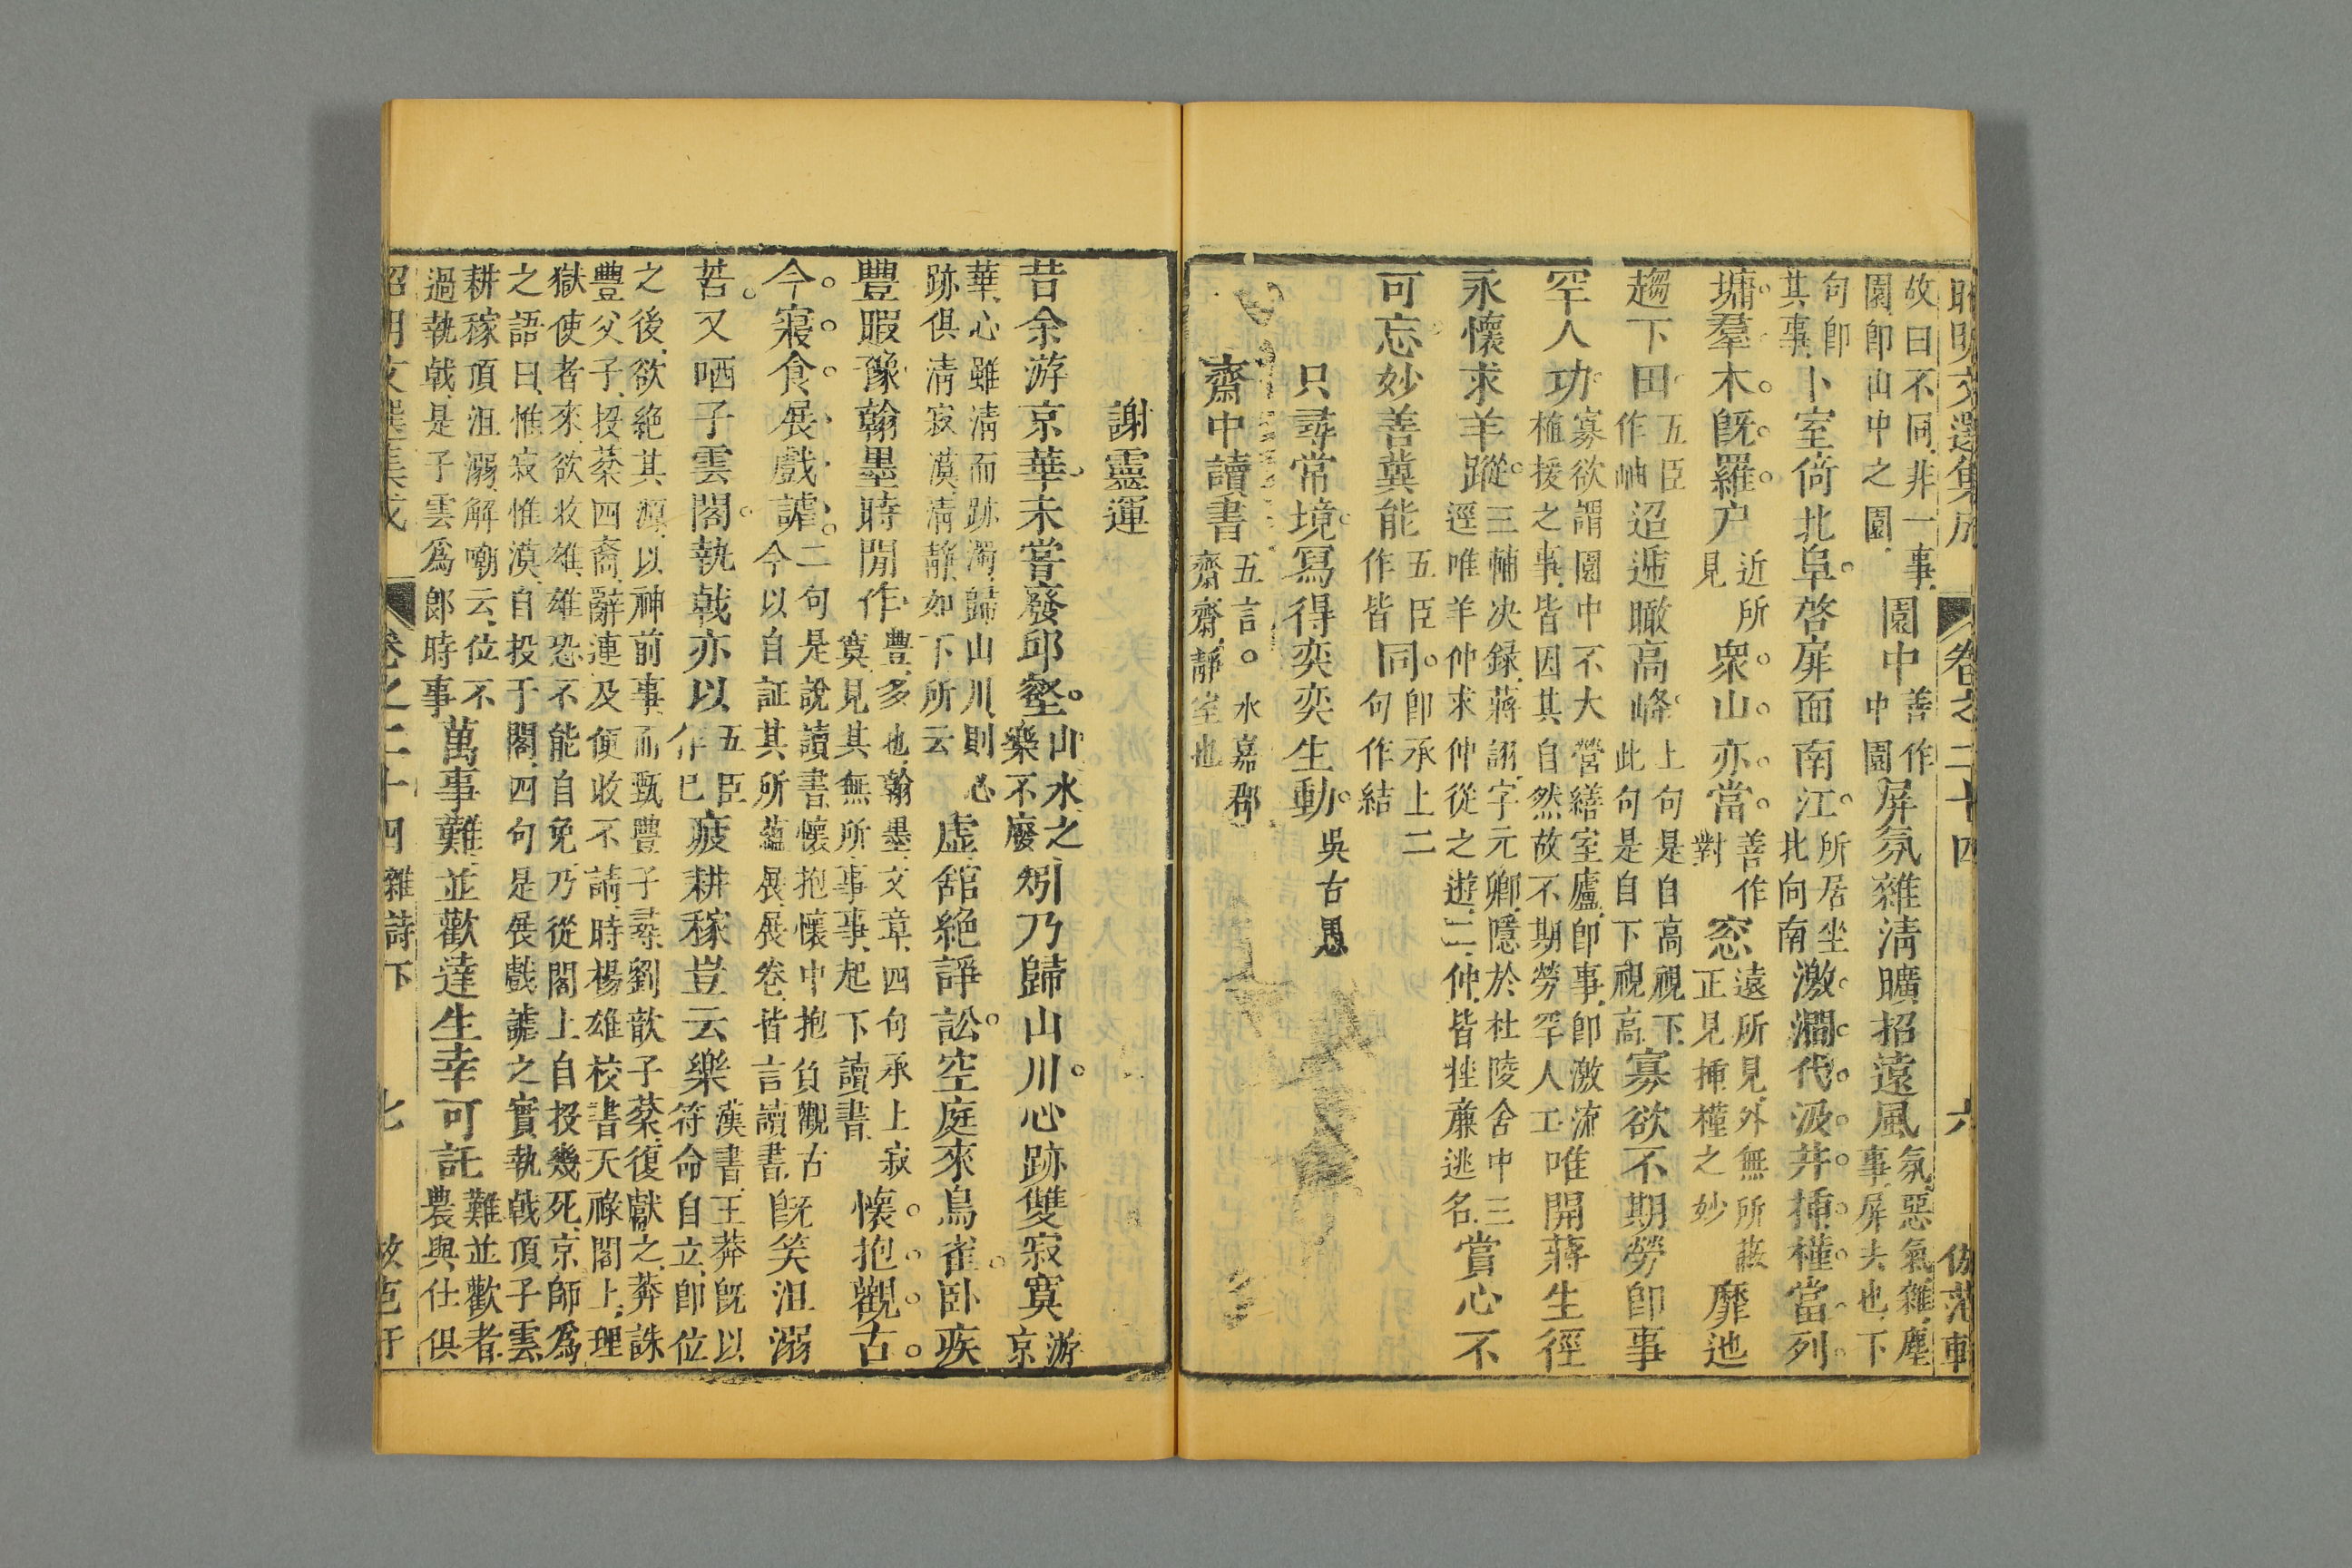 昭明文選集成 卷之二十四 六 倣范軒
故曰不同非一事園卽山中之園園中善作中園屏氛雜淸曠招遠風氛惡氣雜塵事屏夫也下
句卽其事卜室倚北阜啓扉面南江所居坐北向南激澗代汲井揷槿當列
墉羣木旣羅户近所見衆山亦當善作對窓遠所見外無所蔽正見揷槿之妙靡迆
趨下田五臣作岫迢遞瞰高峰上句是自高視下此句是自下視高寡欲不期勞卽事
罕人功寡欲謂園中不大營繕室廬卽事卽激流植援之事皆因其自然故不期勞罕人工唯開蔣生徑
永懷求羊蹤三輔决録蔣詡字元卿隱於杜陵舍中三逕唯羊仲求仲從之遊二仲皆挫廉逃名賞心不
可忘妙善冀能五臣作皆同卽承上二句作結
只尋常境寫得奕奕生動吳古愚
齋中讀書五言永嘉郡齋齋靜室也
謝靈運
昔余游京華未嘗廢邱壑山水之樂不廢矧乃歸山川心跡雙寂寞游京
華心雖淸而跡濁歸山川則心跡俱淸寂漠淸靜如下所云虛舘絶諍訟空庭來鳥雀卧疾
豐暇豫翰墨時閒作豐多也翰墨文章四句承上寂寞見其無所事事起下讀書懷抱觀古
今寢食展戲謔二句是說讀書懷抱懷中抱負觀古今以自証其所蘊展展卷皆言讀書旣笑沮溺
苦又哂子雲閣執戟亦以五臣作已疲耕稼豈云樂漢書王莽旣以符命自立卽位
之後欲絶其源以神前事而甄豐子尋劉歆子棻復獻之莽誅豐父子投棻四裔辭連及便收不請時楊雄校書天祿閣上理
獄使者來欲收雄雄恐不能自免乃從閣上自投幾死京師爲之語曰惟寂惟漠自投于閣四句是展戲謔之實執戟頂子雲
耕稼頂沮溺解嘲云位不過執戟是子雲爲郎時事萬事難並歡達生幸可託難並歡者農與仕俱
昭明文選集成 卷之二十四 雜詩下 七